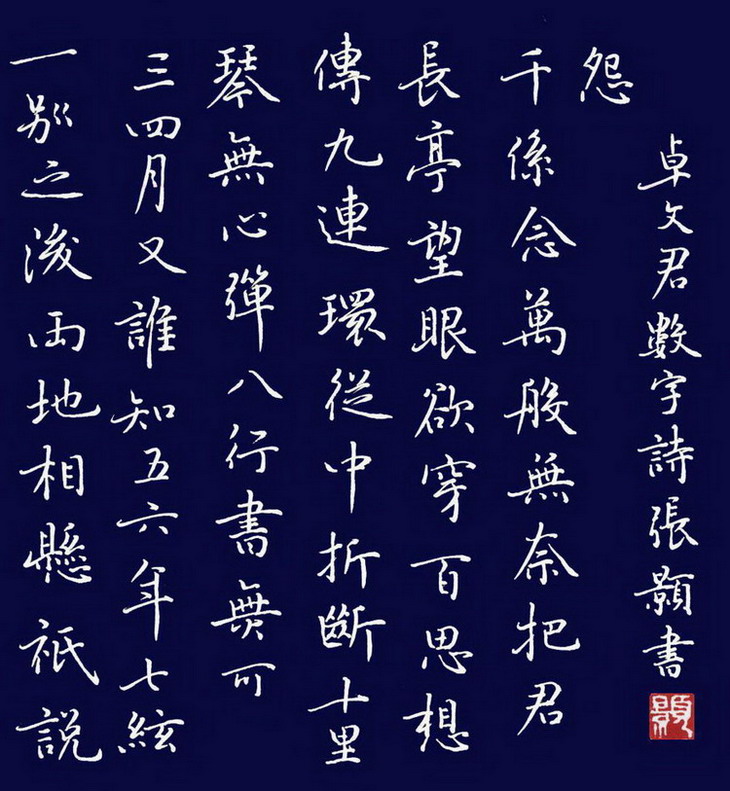 一別之後兩地相懸祇説
三四月又誰知五六年七絃
琴無心彈八行書無可
傳九連環從中折斷十里
長亭望眼欲穿百思想
千係念萬般無奈把君
怨
卓文君數字詩張顥書
顥